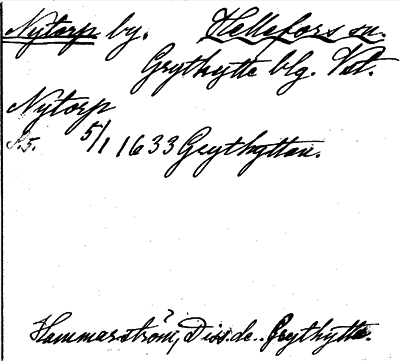 Nytorp by. Hellefors sn.
Grythytte blg. Vstl.
Nytorp
S. 5. 5/1 1633 Grythyttan.
Hammarström, Diss. de.. Grythytta.